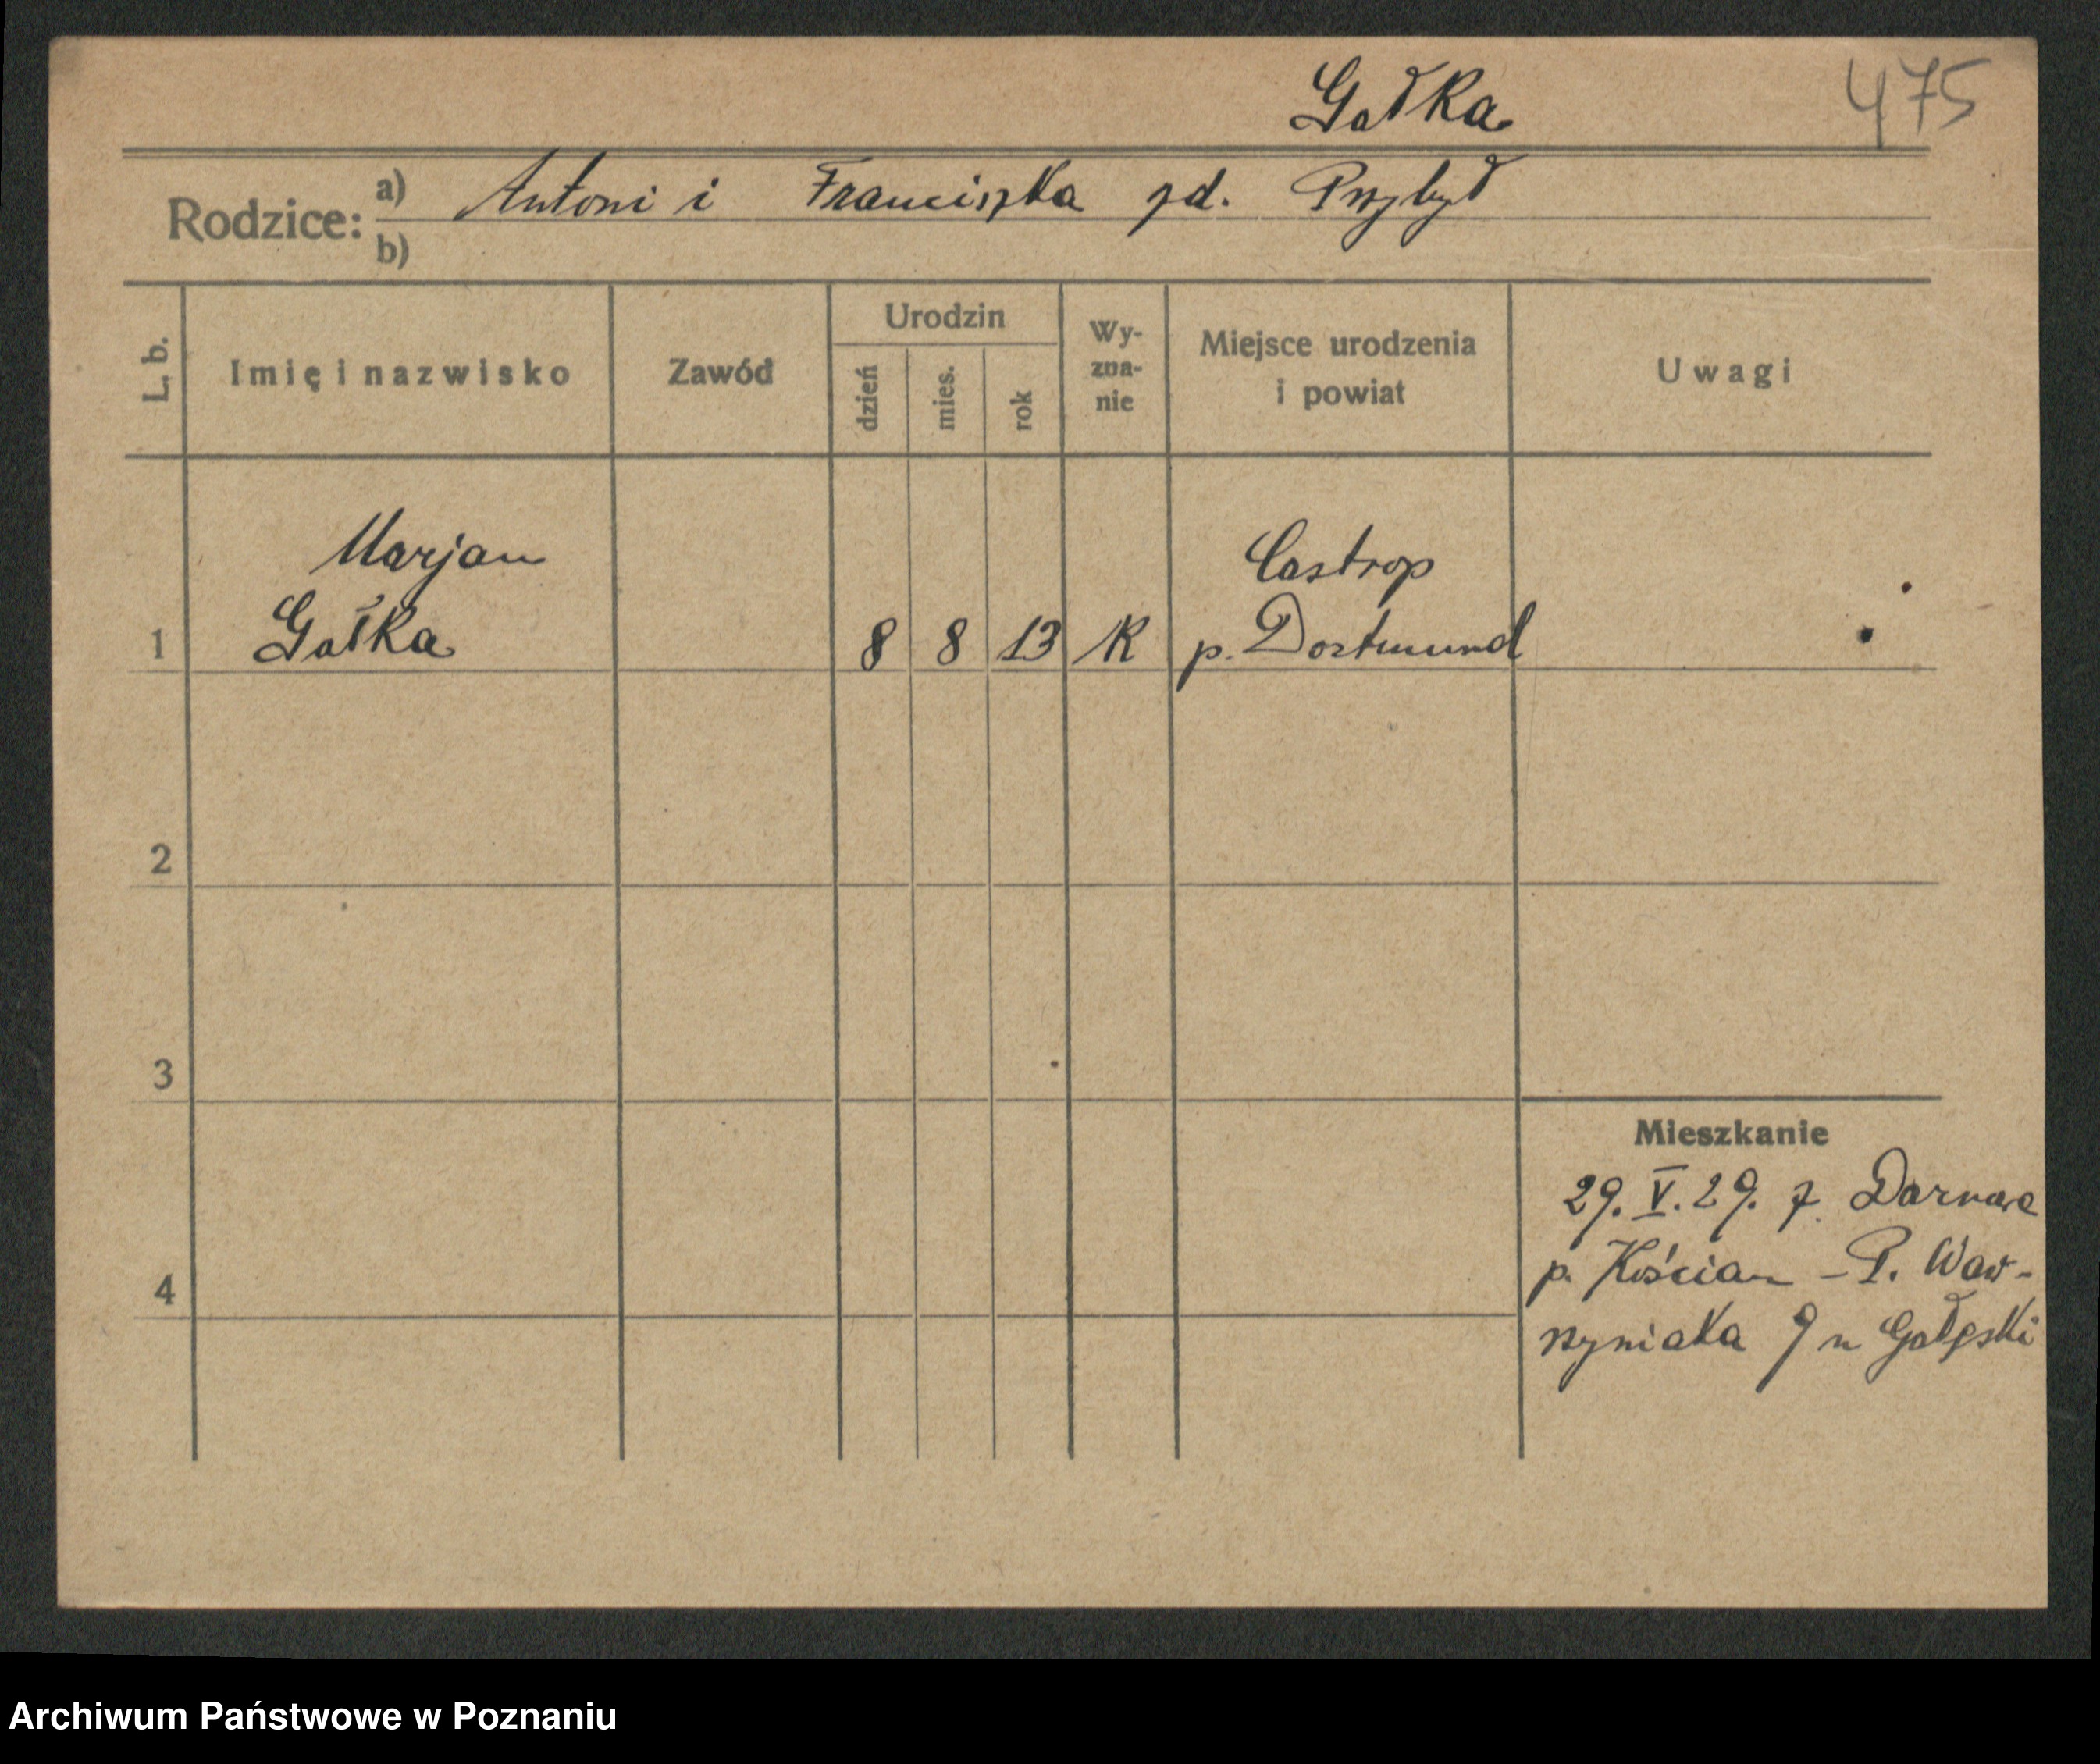 Gałka 475
Rodzice: a) Antoni i Franciszka zd. Przybył
b)
L. b. Imię i nazwisko Zawód Urodzin dzień mies. rok Wy-zna-nie Miejsce urodzenia i powiat Uwagi
Marjan Castrop
1 Gałka 8 8 13 K p. Dortmund
2
3
Mieszkanie
29. V. 29. z Darnowe
4 p. Kościan - P. Waw-
rzyniaka 9 u Gałęski
Archiwum Państwowe w Poznaniu